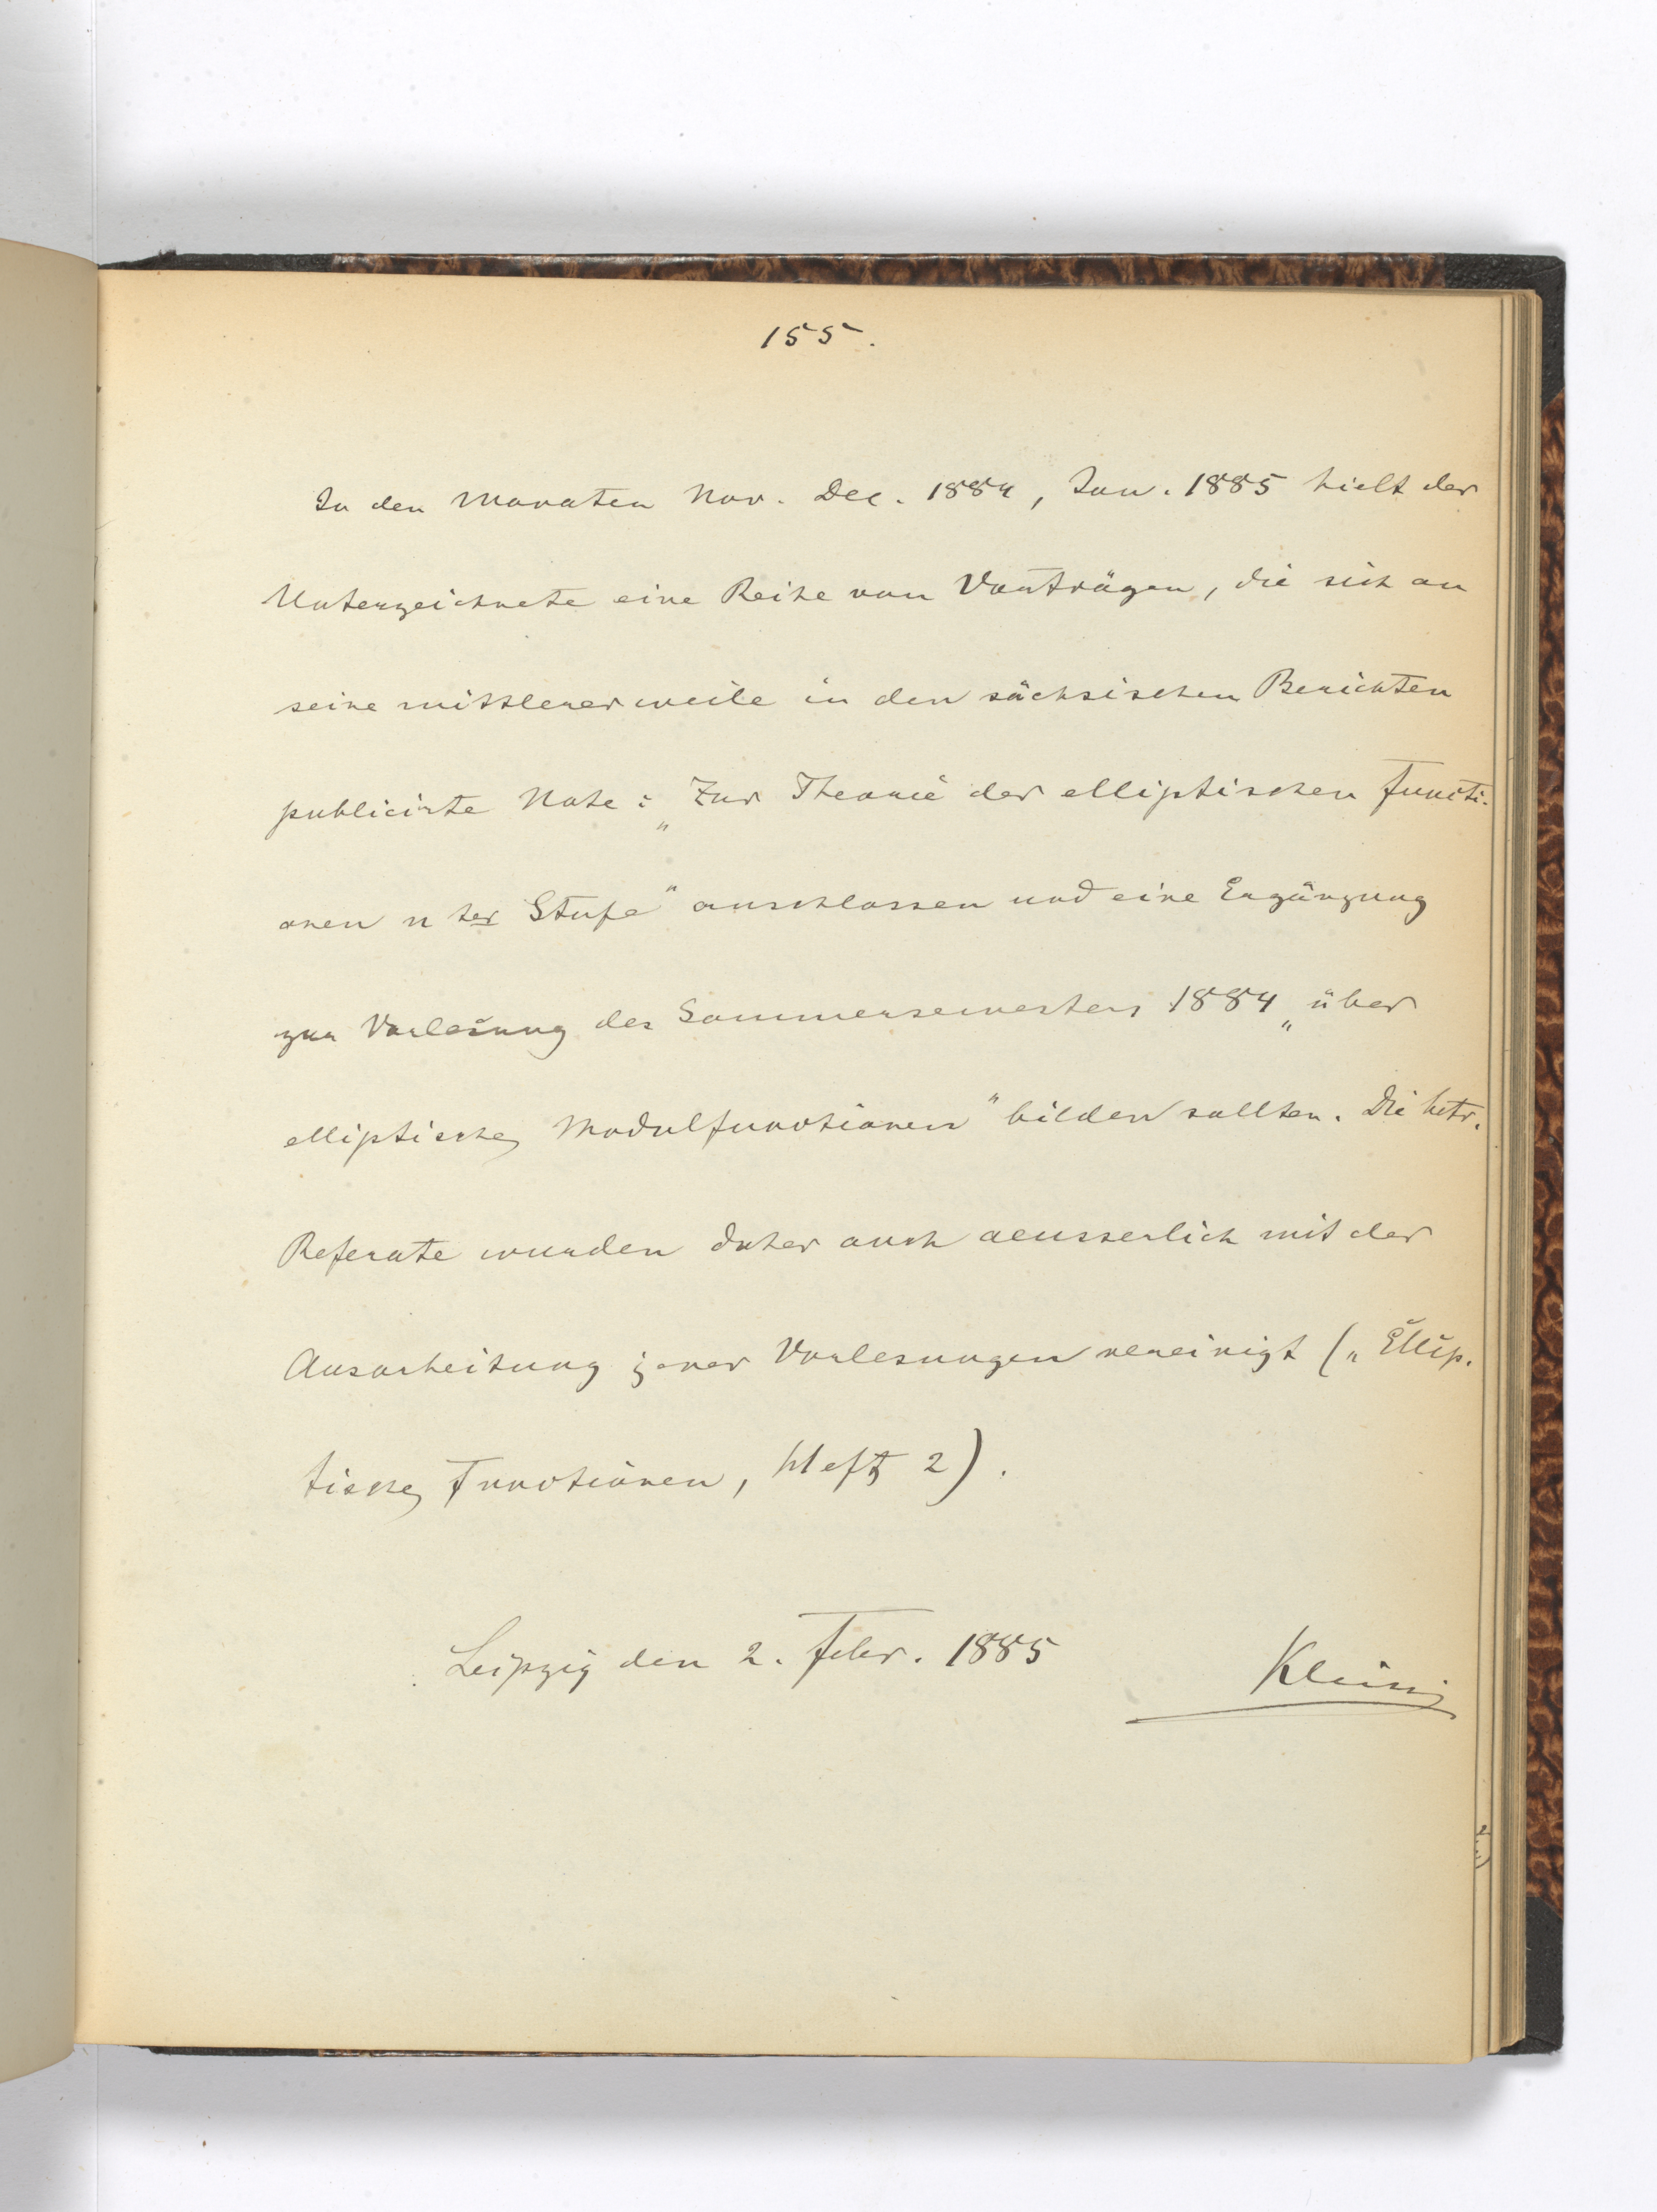 155.
In den Monaten Nov. Dec. 1884, Jan. 1885 hielt der
Unterzeichnete eine Reihe von Vorträgen, die sich an
seine mittlerer weile in den sächsischen Berichten
publicirte Note: „Zur Theorie der elliptischen Functi-
onen n ter Stufe" anschlossen und eine Ergänzung
zur Vorlesung des Sommersemesters 1884 „über
elliptische Modulfunctionen" bilden sollten. Die betr.
Referate wurden daher auch aeusserlich mit der
Ausarbeitung jener Vorlesungen vereinigt („Ellip-
tische Functionen, Heft 2).
Leipzig den 2. Febr. 1885
Klein